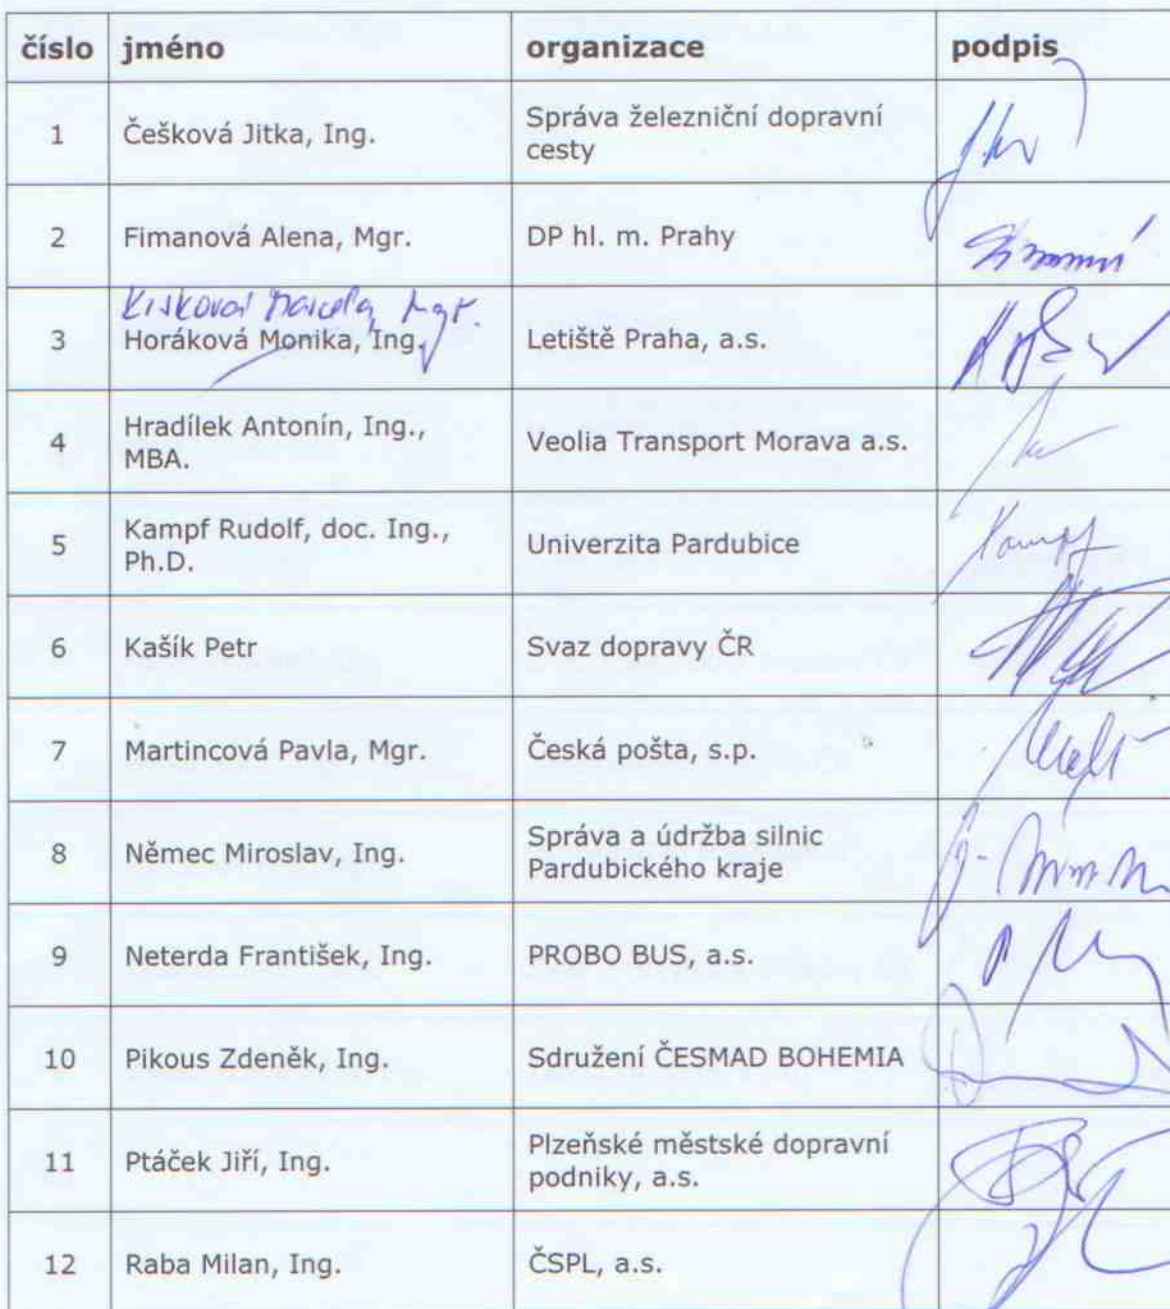 číslo jméno organizace podpis
1 Češková Jitka, Ing. Správa železniční dopravní
cesty
2 Fimanová Alena, Mgr. DP hl. m. Prahy
Mgr.
3 Horáková Monika, Ing. Letiště Praha, a.s.
4 Hradílek Antonín, Ing., Veolia Transport Morava a.s.
MBA.
5 Kampf Rudolf, doc. Ing., Univerzita Pardubice Kampf
Ph.D.
6 Kašík Petr Svaz dopravy ČR
7 Martincová Pavla, Mgr. Česká pošta, s.p.
8 Němec Miroslav, Ing. Správa a údržba silnic
Pardubického kraje
9 Neterda František, Ing. PROBO BUS, a.s.
10 Pikous Zdeněk, Ing. Sdružení ČESMAD BOHEMIA
11 Ptáček Jiří, Ing. Plzeňské městské dopravní
podniky, a.s.
12 Raba Milan, Ing. ČSPL, a.s.